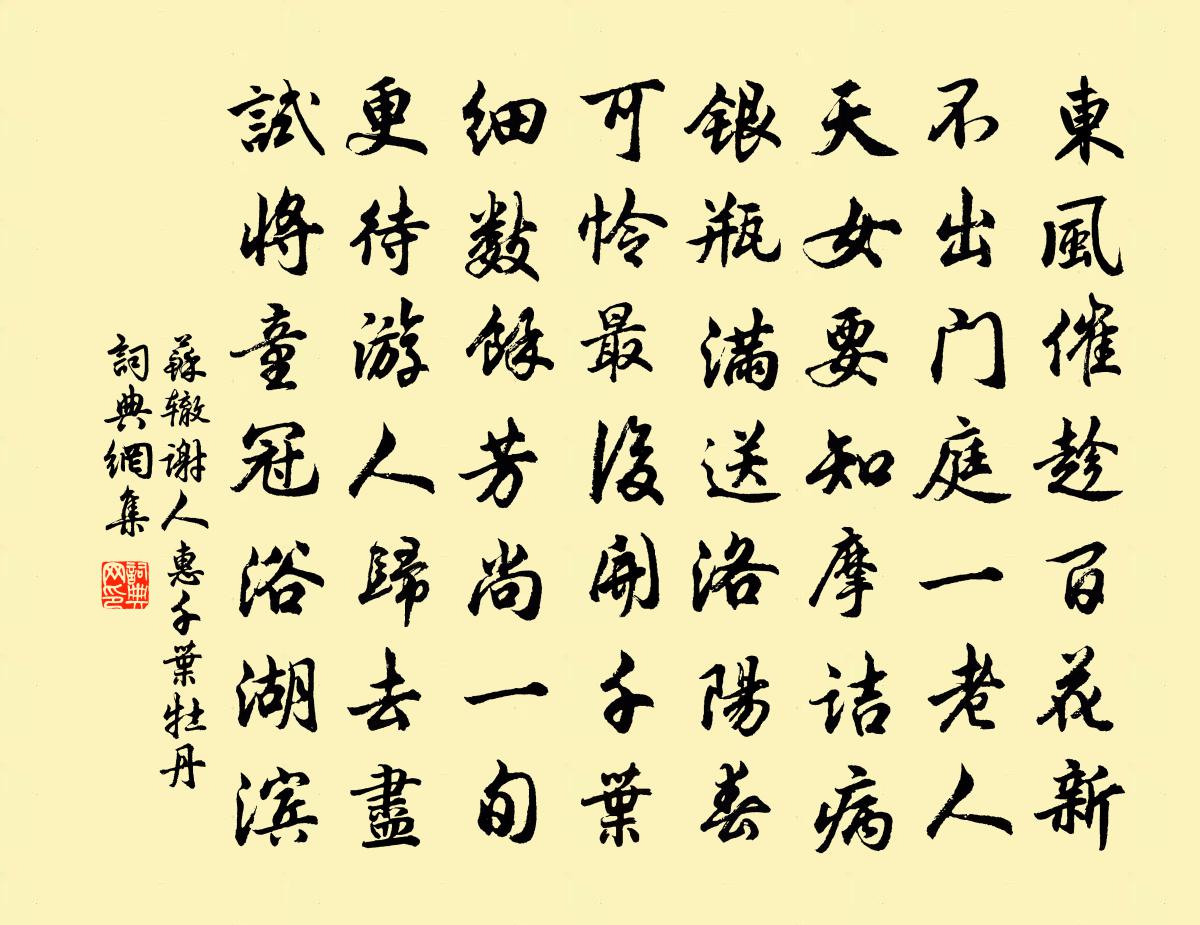 東風催趁百花新
不出門庭一老人
天女要知摩詰病
銀瓶滿送洛陽春
可怜最後開千葉
細數餘芳尚一旬
更待游人歸去盡
試將童冠浴湖滨
蘇辙谢人惠千葉牡丹
詞典網集
詞典网印